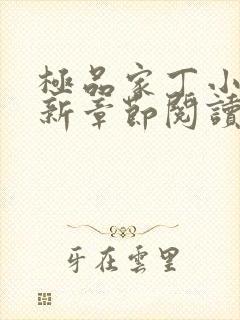 極品家丁小
新章節閱讀
牙在雲里